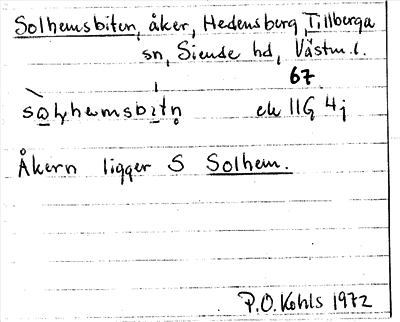 Solhemsbiten, åker, Hedensberg, Tillberga
sn, Siende hd, Västm. l.
67
ek 11G 4j
Åkern ligger S Solhem.
P.O. Kohls 1972